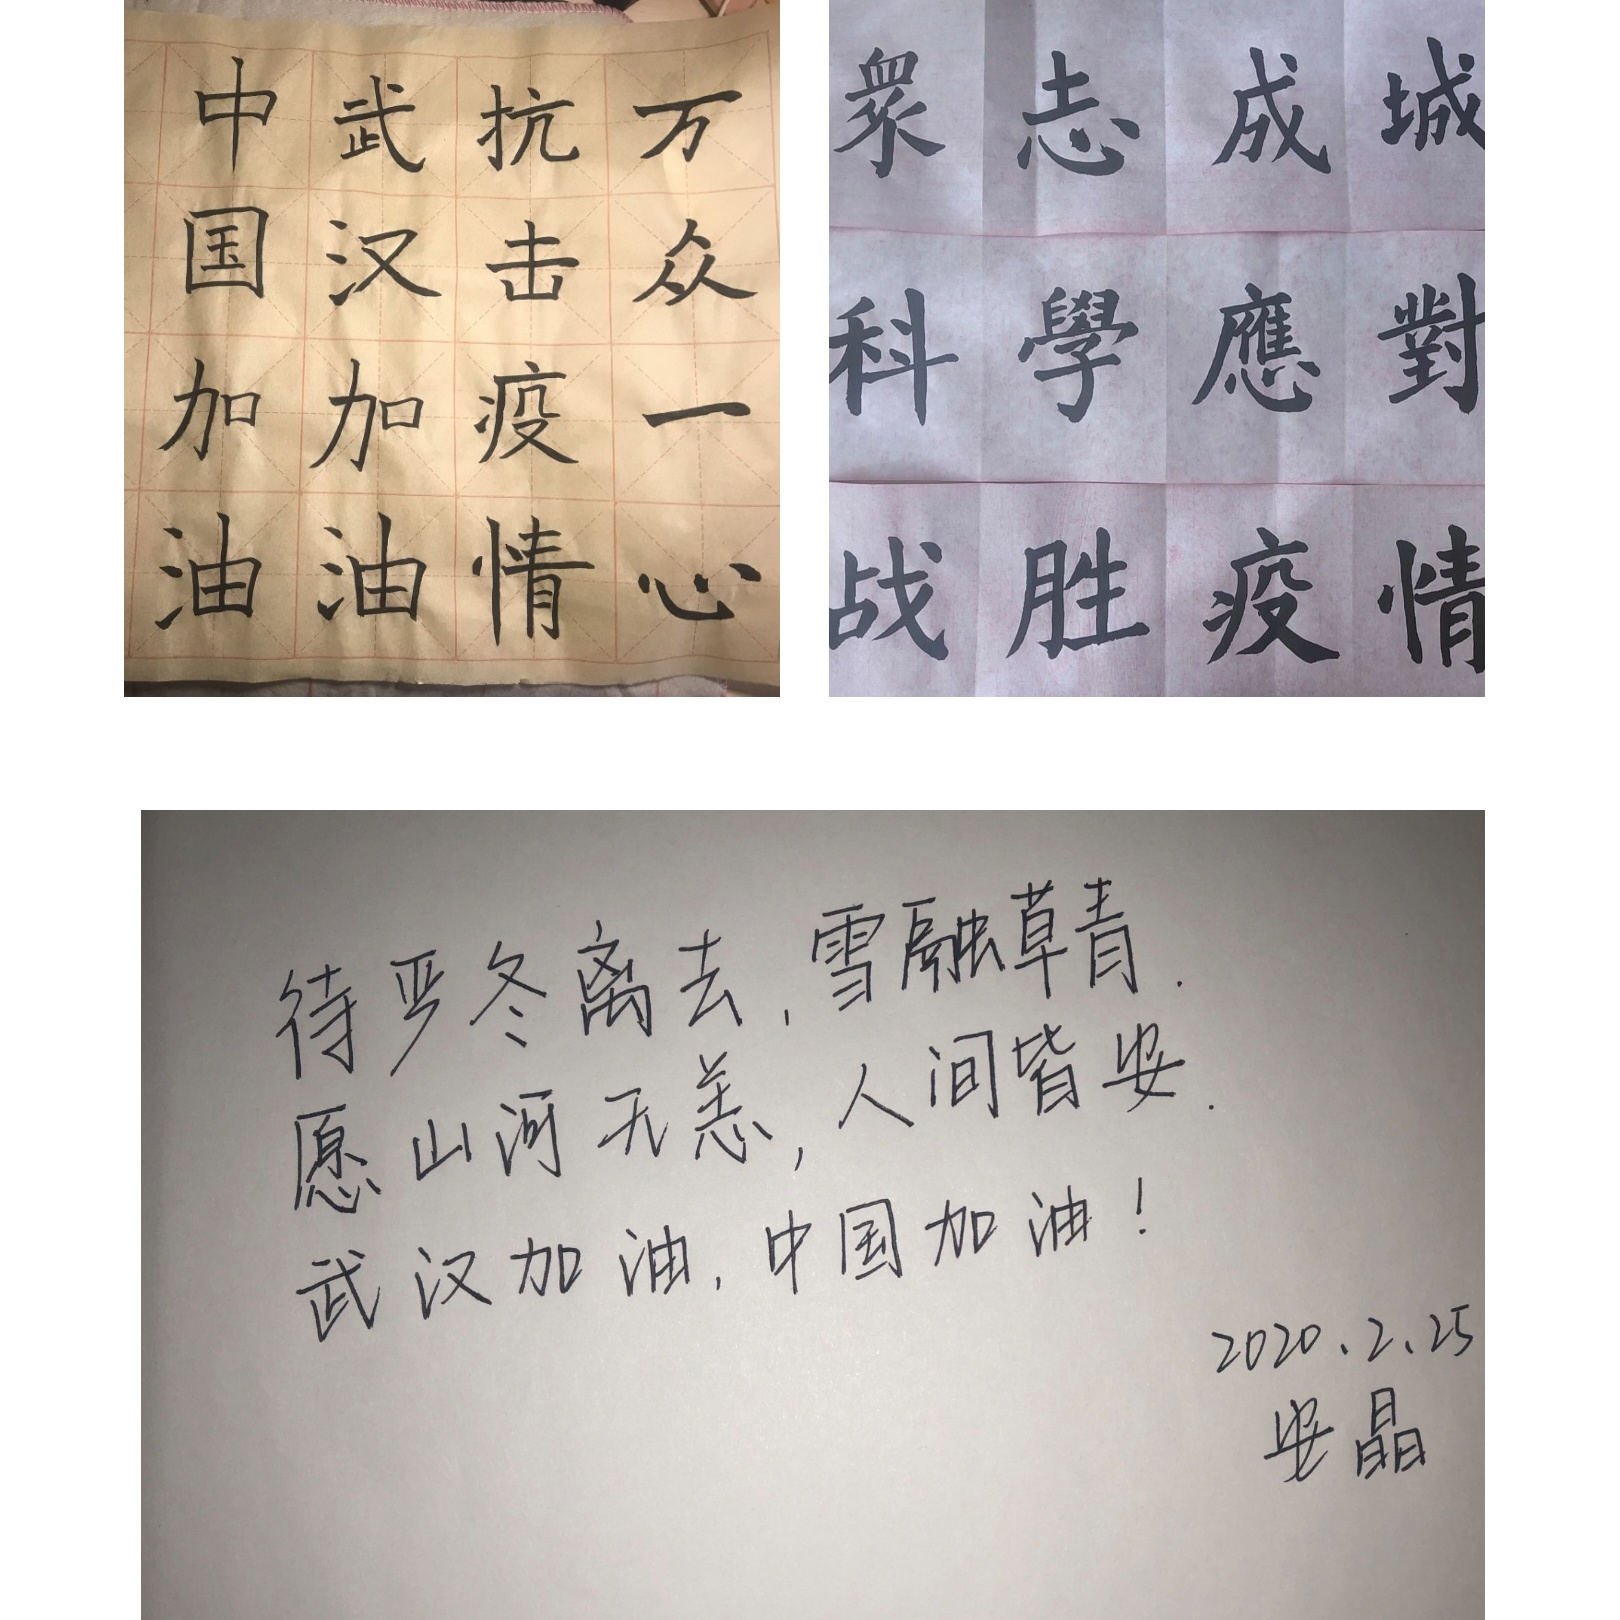 万众一心
抗击疫情
武汉加油
中国加油
衆志成城
科學應對
战胜疫情
待严冬离去,雪融草青.
愿山河无恙,人间皆安.
武汉加油,中国加油!
2020、2、25
安晶